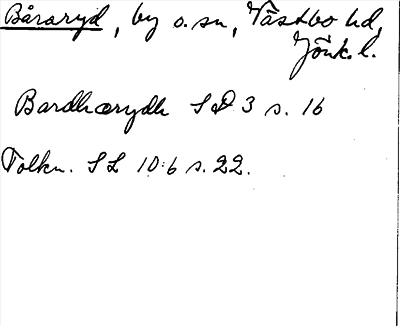 Båraryd, by o. sn, Västbo hd,
Jönk. l.
Bardhærydh SD 3 s. 16
Tolkn. SL 10:6 s. 22.